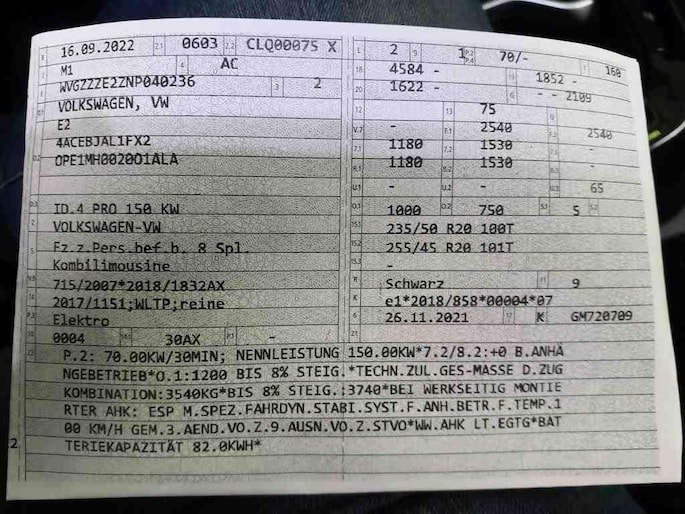 16.09.2022 2.1 0603 2.2 CLQ00075 X
M1 4 AC
WVGZZZE2ZNP040236 3 2
VOLKSWAGEN, VW
E2
4ACEBJAL1FX2
OPE1MH0020O1ALA
ID.4 PRO 150 KW
VOLKSWAGEN-VW
Fz.z.Pers.bef.b. 8 Spl.
Kombilimousine
715/2007*2018/1832AX
2017/1151;WLTP;reine
Elektro
0004 30AX -
L 2 9 1 P.2 P.4 70/- T 160
18 4584 - 19 1852 -
20 1622 - G - - 2109
12 13 75 Q
V.7 - F.1 2540 F.2 2540
7.1 1180 7.2 1530 -
8.1 1180 8.2 1530 -
U.1 - U.2 - U.3 65
O.1 1000 O.2 750 S.1 5 S.2
15.1 235/50 R20 100T
15.2 255/45 R20 101T
15.3 -
R Schwarz 11 9
K e1*2018/858*00004*07
6 26.11.2021 17 K GM720709
21
22 P.2: 70.00KW/30MIN; NENNLEISTUNG 150.00KW*7.2/8.2:+0 B.ANHÄ
NGEBETRIEB*O.1:1200 BIS 8% STEIG.*TECHN.ZUL.GES-MASSE D.ZUG
KOMBINATION:3540KG*BIS 8% STEIG.:3740*BEI WERKSEITIG MONTIE
RTER AHK: ESP M.SPEZ.FAHRDYN.STABI.SYST.F.ANH.BETR.F.TEMP.1
00 KM/H GEM.3.AEND.VO.Z.9.AUSN.VO.Z.STVO*WW.AHK LT.EGTG*BAT
TERIEKAPAZITÄT 82.0KWH*